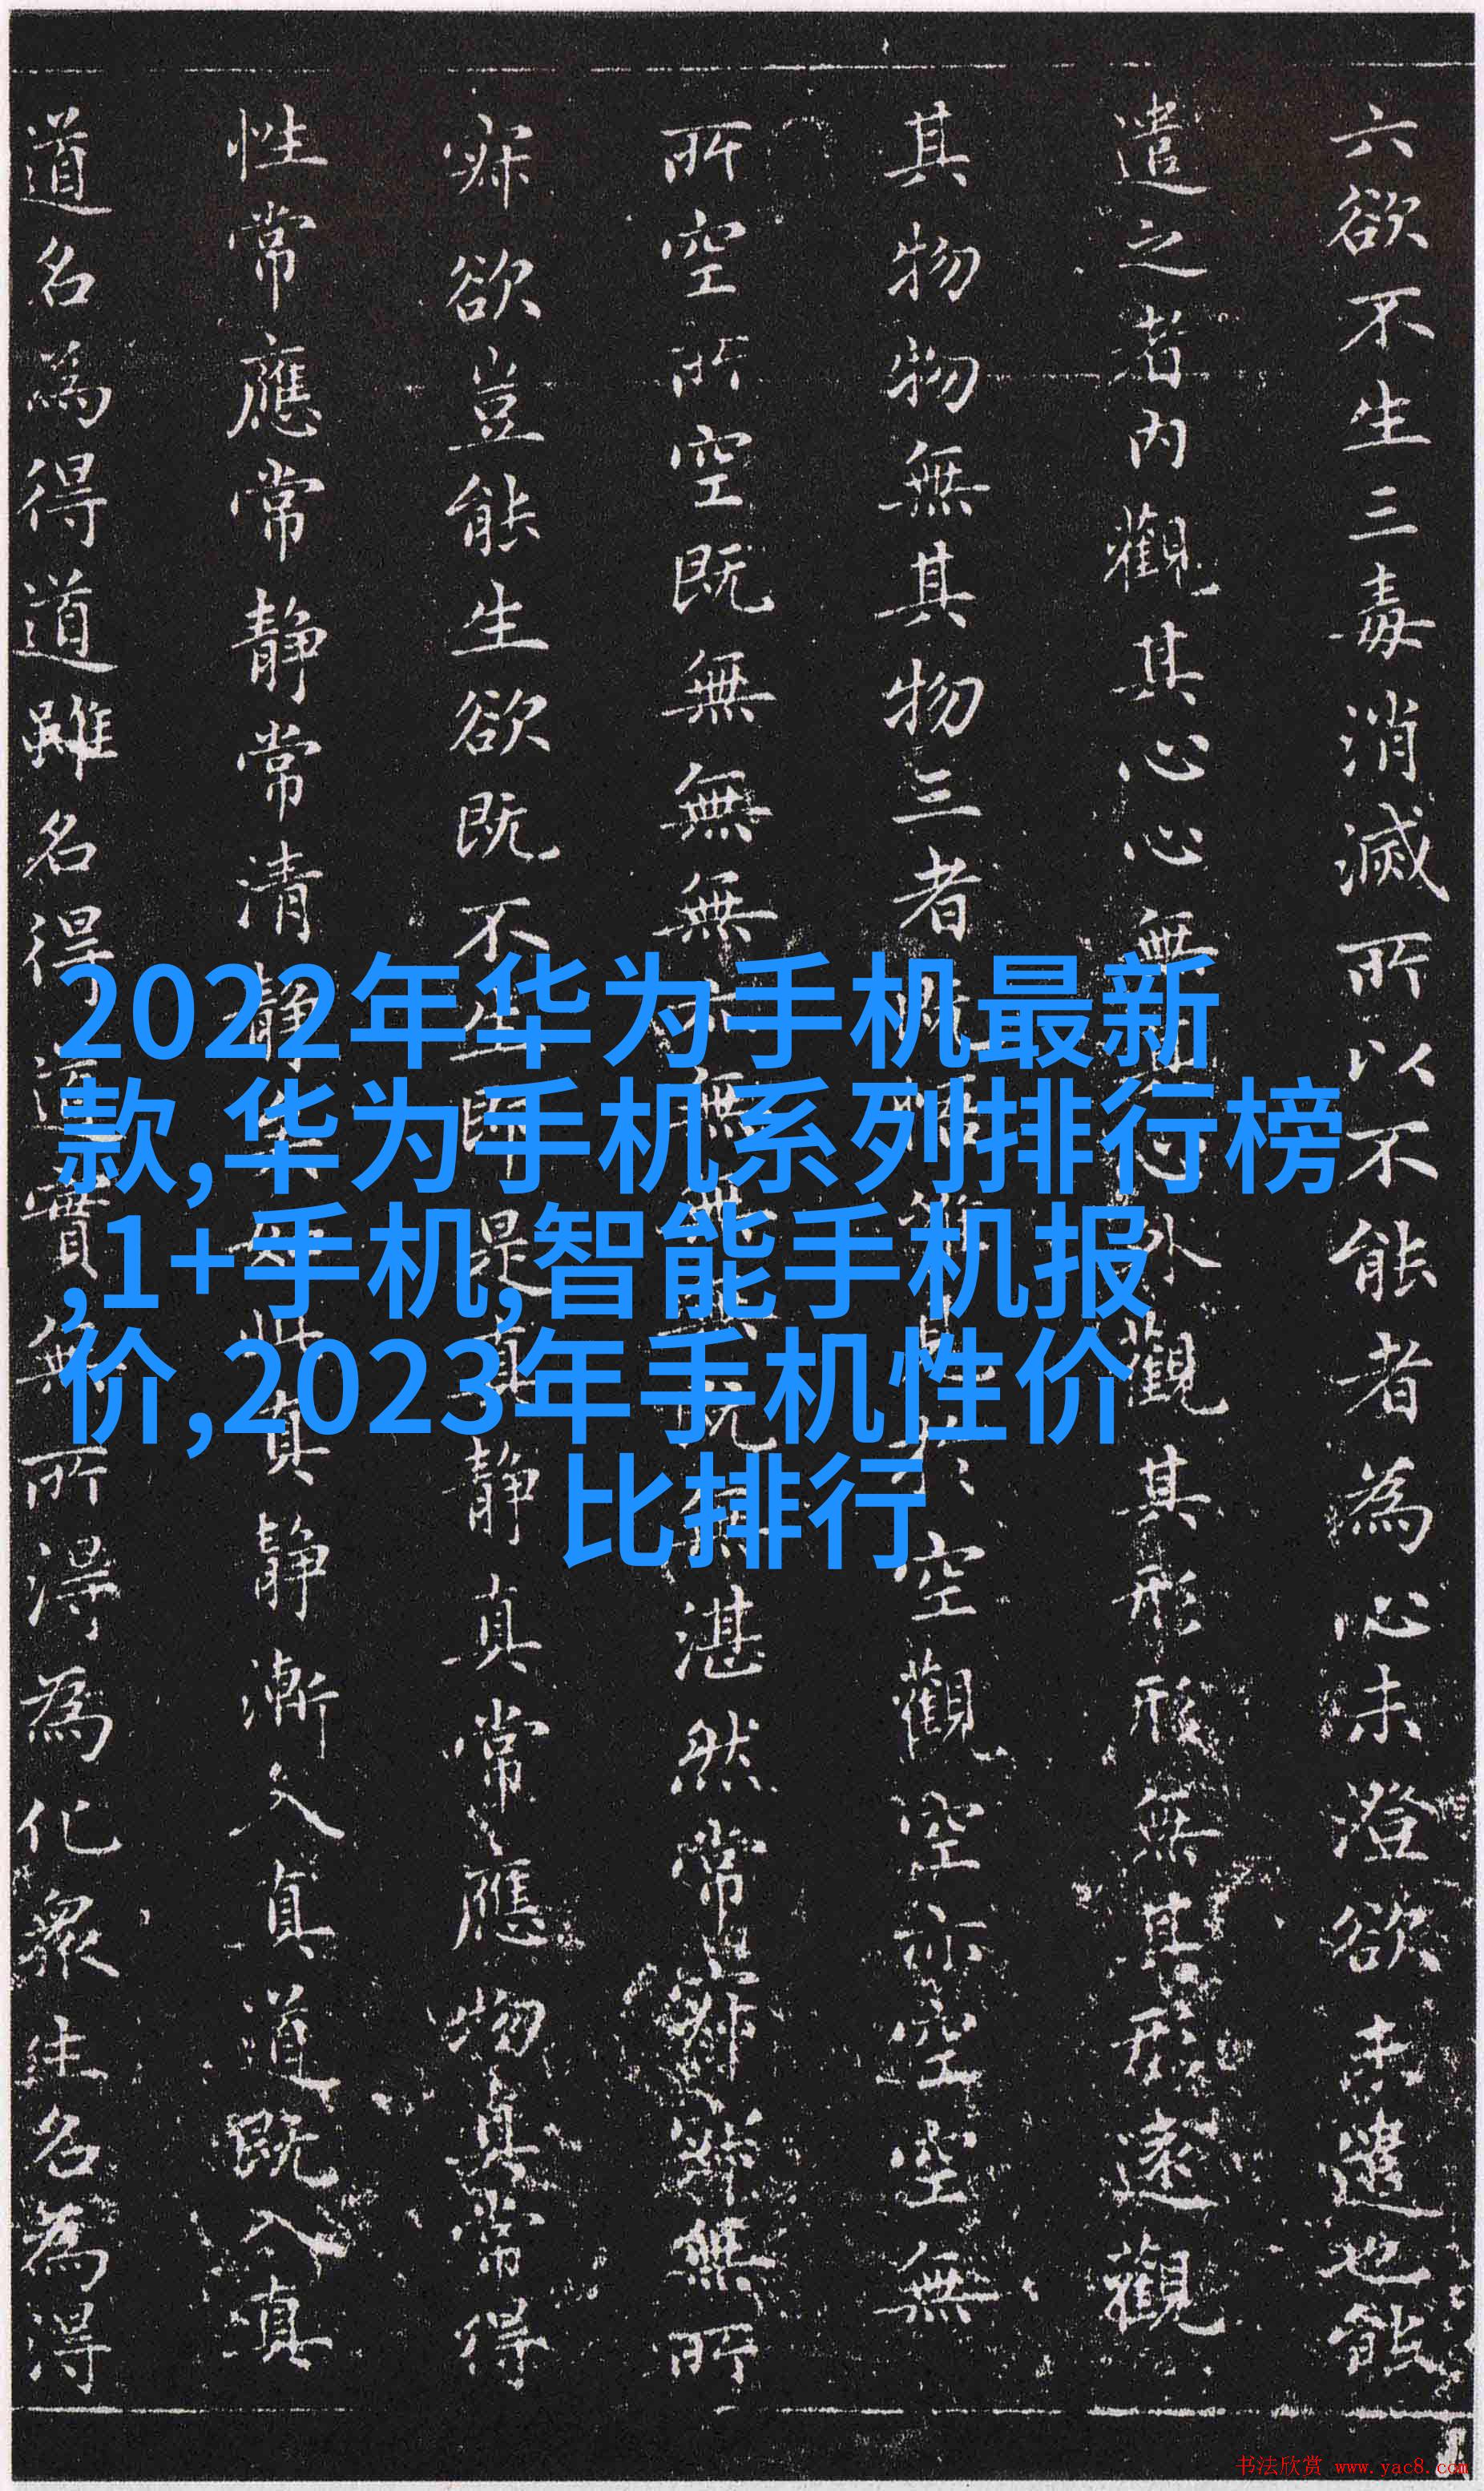 六欲不生三毒消滅所以不能者為心未澄欲未遣也能
遣之者内觀其心心無其心外觀其形形無其形遠觀
其物物無其物三者既悟唯見於空觀空亦空空無
所空所空既無無無亦無無無既無湛然常寂寂無所
寂欲豈能生欲既不生即是真静真常應物真常得
性常應常静常清静矣如此真静漸入真道既入真
道名為得道雖名得道實無所得為化衆生名為得
2022年华为手机最新
款,华为手机系列排行榜
,1+手机,智能手机报
价,2023年手机性价
比排行
书法欣赏 www.yac8.com